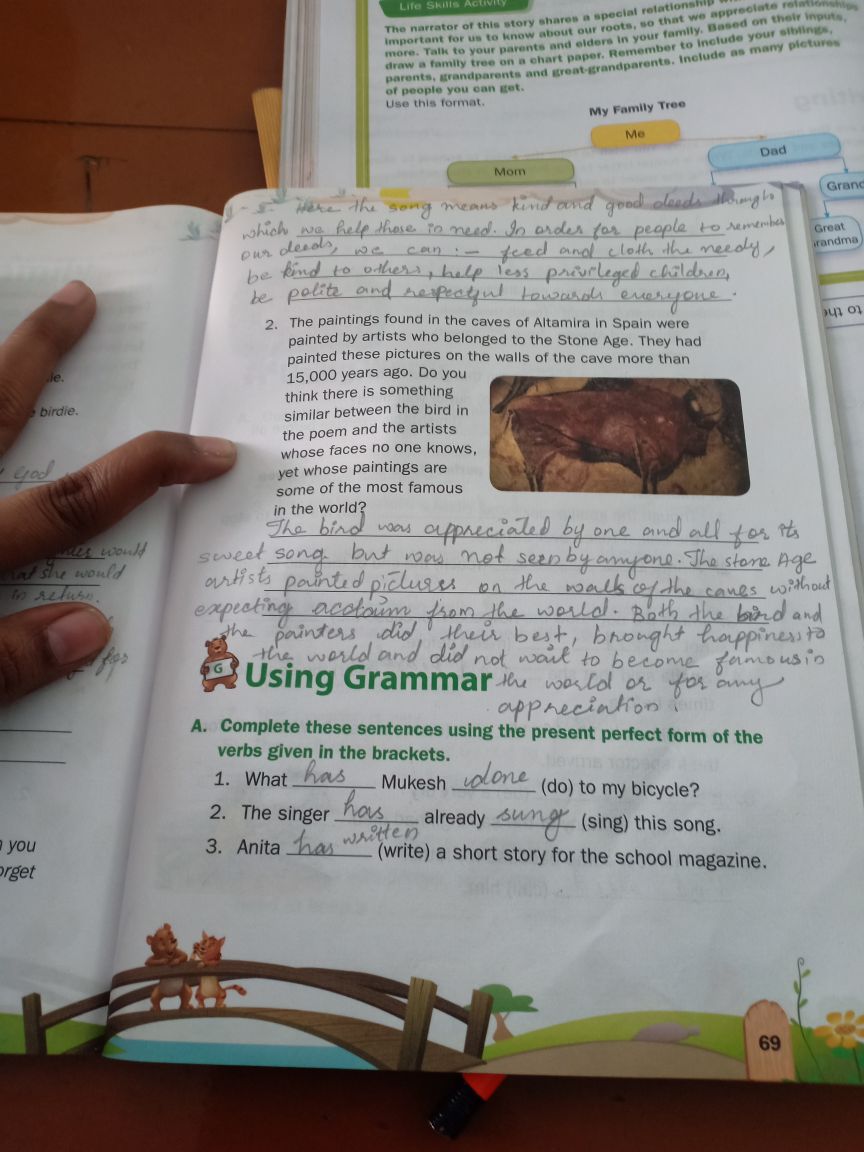 Life Skills Activity
The narrator of this story shares a special relationship
important for us to know about our roots, so that we appreciate relationships
more. Talk to your parents and elders in your family. Based on their inputs,
draw a family tree on a chart paper. Remember to include your siblings,
parents, grandparents and great-grandparents. Include as many pictures
of people you can get.
Use this format.
My Family Tree
Me
Mom
Dad
Great
Here the song means kind and good deeds through
which we help those in need. In order for people to remember
our deeds, we can :- feed and cloth the needy,
be kind to others, help less privileged children,
be polite and respectful towards everyone.
2. The paintings found in the caves of Altamira in Spain were
painted by artists who belonged to the Stone Age. They had
painted these pictures on the walls of the cave more than
15,000 years ago. Do you
think there is something
similar between the bird in
the poem and the artists
whose faces no one knows,
yet whose paintings are
some of the most famous
in the world?
The bird was appreciated by one and all for its
sweet song but was not seen by anyone. The stone Age
artists painted pictures on the walls of the caves without
expecting from the world. Both the bird and
the painters did their best, brought happiness to
the world and did not wait to become famous in
the world or for any
appreciation.
G
Using Grammar
A. Complete these sentences using the present perfect form of the
verbs given in the brackets.
1. What has Mukesh done (do) to my bicycle?
2. The singer has already sung (sing) this song.
3. Anita has written (write) a short story for the school magazine.
69
birdie.
God
would
that she would
in return.
for
you